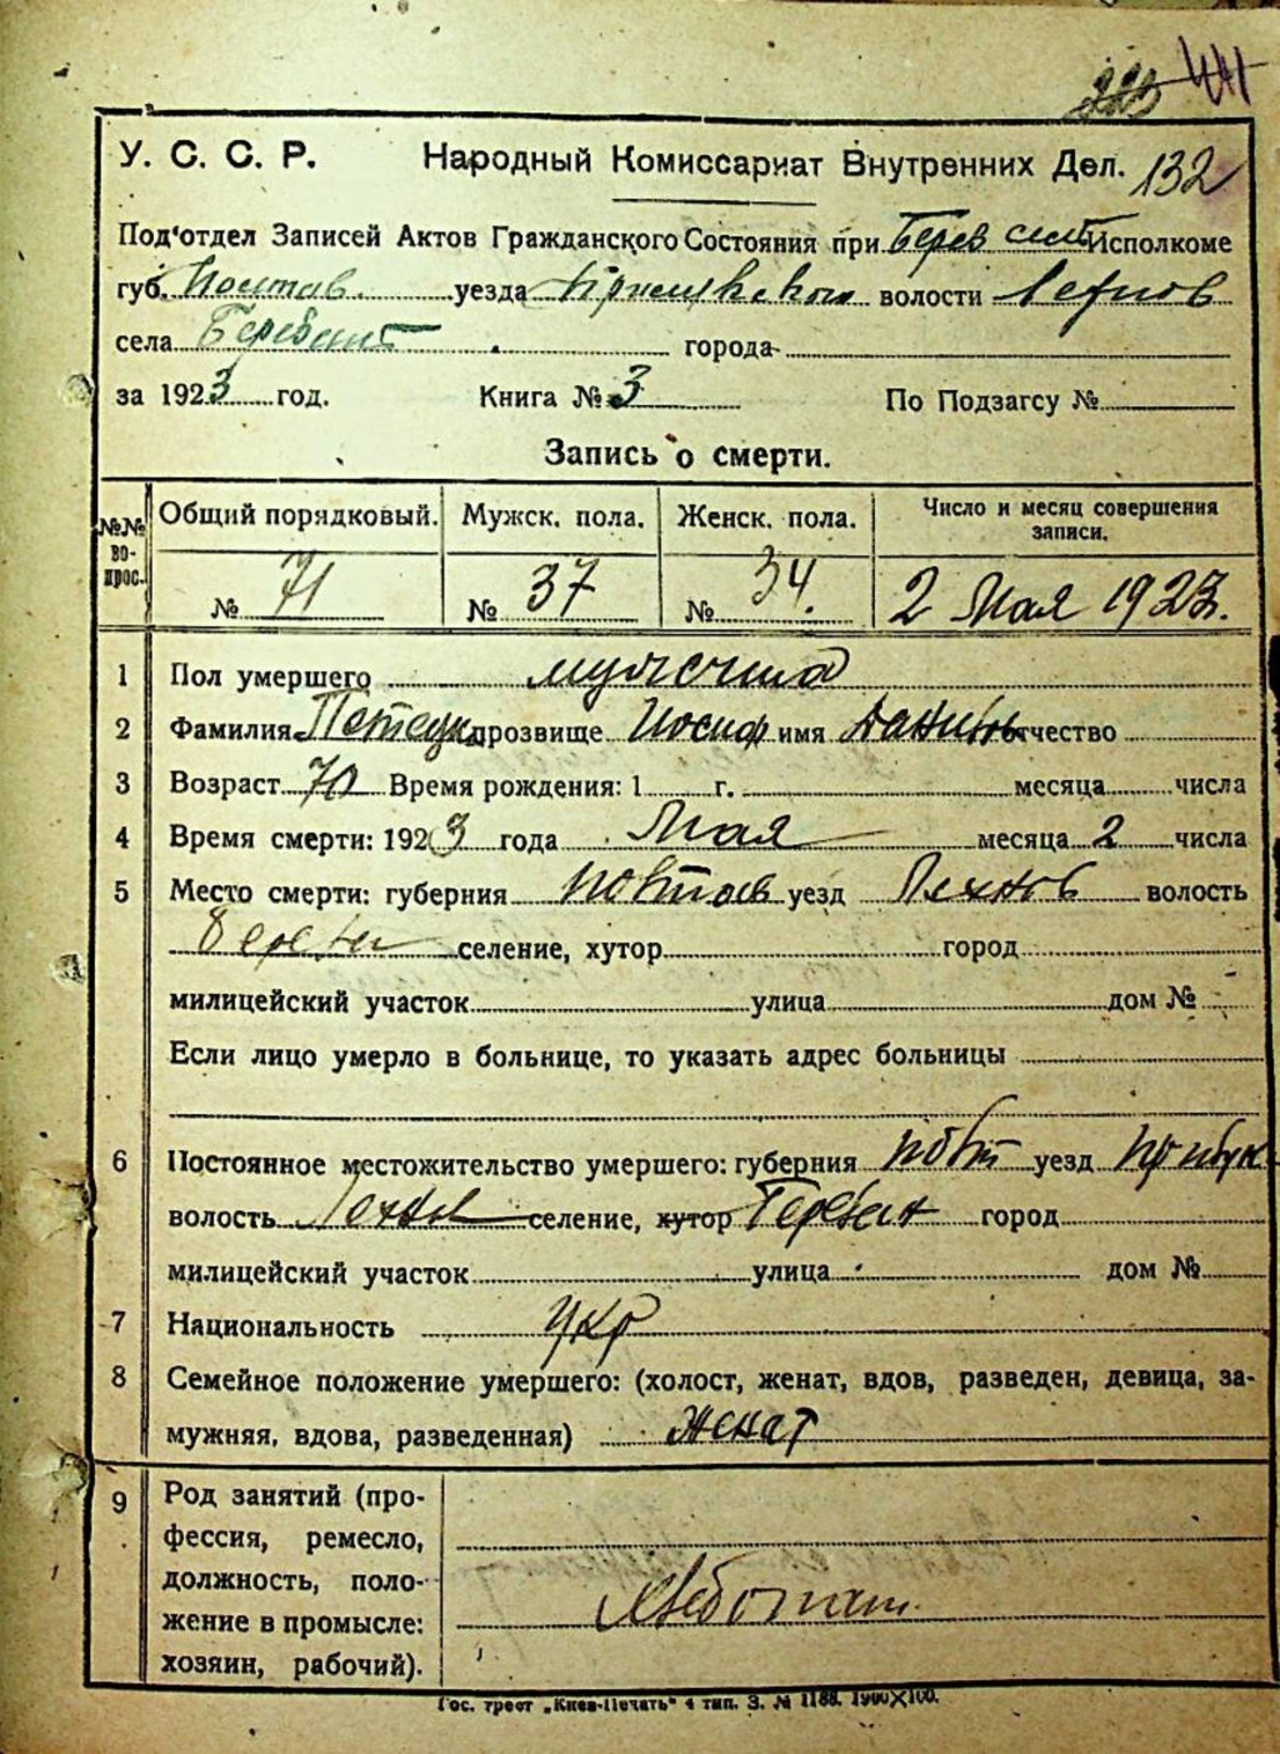 441
У. С. С. Р. Народный Комиссариат Внутренних Дел. 132
Под'отдел Записей Актов Гражданского Состояния при Берез сель Исполкоме
губ. Полтав. уезда Прилукского волости
села города
за 1923 год. Книга № 3 По Подзагсу №
Запись о смерти.
№№ вопрос. Общий порядковый. Мужск. пола. Женск. пола. Число и месяц совершения записи.
№ 71 № 37 № 34. 2 Мая 1923.
1 Пол умершего мужчина
2 Фамилия прозвище Иосиф имя отчество
3 Возраст 70 Время рождения: 1 г. месяца числа
4 Время смерти: 1923 года Мая месяца 2 числа
5 Место смерти: губерния Полтав уезд волость
селение, хутор город
милицейский участок улица дом №
Если лицо умерло в больнице, то указать адрес больницы
6 Постоянное местожительство умершего: губерния Полт уезд
волость селение, хутор город
милицейский участок улица дом №
7 Национальность Укр
8 Семейное положение умершего: (холост, женат, вдов, разведен, девица, за-
мужняя, вдова, разведенная) женат
9 Род занятий (про-
фессия, ремесло,
должность, поло-
жение в промысле:
хозяин, рабочий).
Гос. трест „Киев-Печать" 4 тип. З. № 1188. 1900×100.